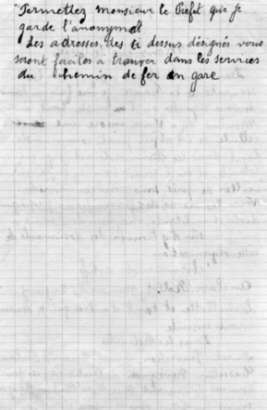 Permettez monsieur le Préfet que je
garde l'anonymat
Les adresses des ci dessus désignés vous
seront faciles a trouver dans les services
du chemin de fer en gare